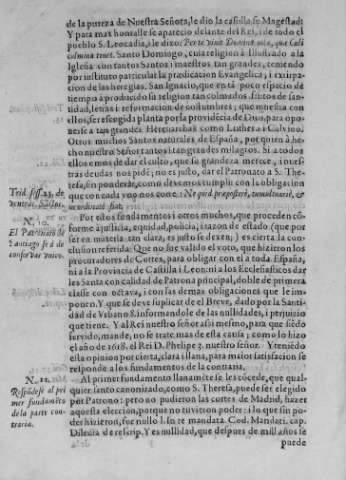 de la pureza de Nuestra Señora, le dio la casulla su Magestad:
Y para mas honralle se aparecio delante del Rei, i de todo el
pueblo S. Leocadia, i le dixo: Per te vivit Domina mea, que Cæli
culmina tenet. Santo Domingo, cuia religion à Ilustrado a la
Iglesia con tantos Santos i maestros tan grandes, teniendo
por instituto particular la prædicacion Evangelica, i extirpa-
cion de las heregias. San Ignacio, que en tã poco espacio de
tiempo à producido su religion tan colmados frutos de san-
tidad, letras i reformacion de costumbres; que muestra con
ellos, ser escogida planta por la providẽcia de Dios, para opo-
nerse a tan grandes Heresiarchas como Luthero i Calvino.
Otros muchos Santos naturales de España, por quien à he-
cho nuestro Señor tantos i tan grandes milagros. Si a todos
ellos emos de dar el culto, que su grandeza merece, i nues-
tras deudas nos pide; no es justo, dar el Patronato a S. The-
resa, sin ponderar, como devemos cumplir con la obligacion
que con cada uno nos corre: Ne quid præposterè, tumultuariè, &
inordinatè fiat.
Trid. sess. 25. de
Por estos fundamentos i otros muchos, que proceden cõ-
forme a justicia, equidad, policia, i razon de estado (que por
ser en materia tan clara, es justo se dexen) es cierta la con-
clusion referida: Que no fue valido el voto, que hizieron los
procuradores de Cortes, para obligar con el a toda España,
ni a la Provincia de Castilla i Leon: ni a los Ecclesiasticos dar
les Santa con calidad de Patrona principal, doble de primera
classe con octava, i con las demas obligaciones que le im
ponen. Y que se deve suplicar de el Breve, dado por la Santi-
dad de Urbano 8. informandole de las nullidades, i perjuizio
que tiene. Y al Rei nuestro señor assi mesmo, para que siẽdo
servido, mande, no se trate mas de esta causa; como lo hizo
el año de 1618. el Rei D. Phelipe 3. nuestro señor. Y teniẽdo
esta opinion por cierta, clara i llana, para maior satisfacion se
responde a los fundamentos de la contraria.
N. 10.
El Patronato de
Santiago se à de
conservar unico.
Al primer fundamento llanamẽte se les cõcede, que qual-
quier santo canonizado, como S. Theresa, puede ser elegido
por Patrono: pero no pudieron las cortes de Madrid, hazer
aquesta eleccion, porque no tuvieron poder: i lo que sin po-
der hizieron, fue nullo l. si re mandata. Cod. Mandati. cap.
Dilecta de rescrip. Y es nullidad, que despues de mill años se
N. 11.
Respõdese al pri
mer fundamẽto
de la parte con-
traria.
puede